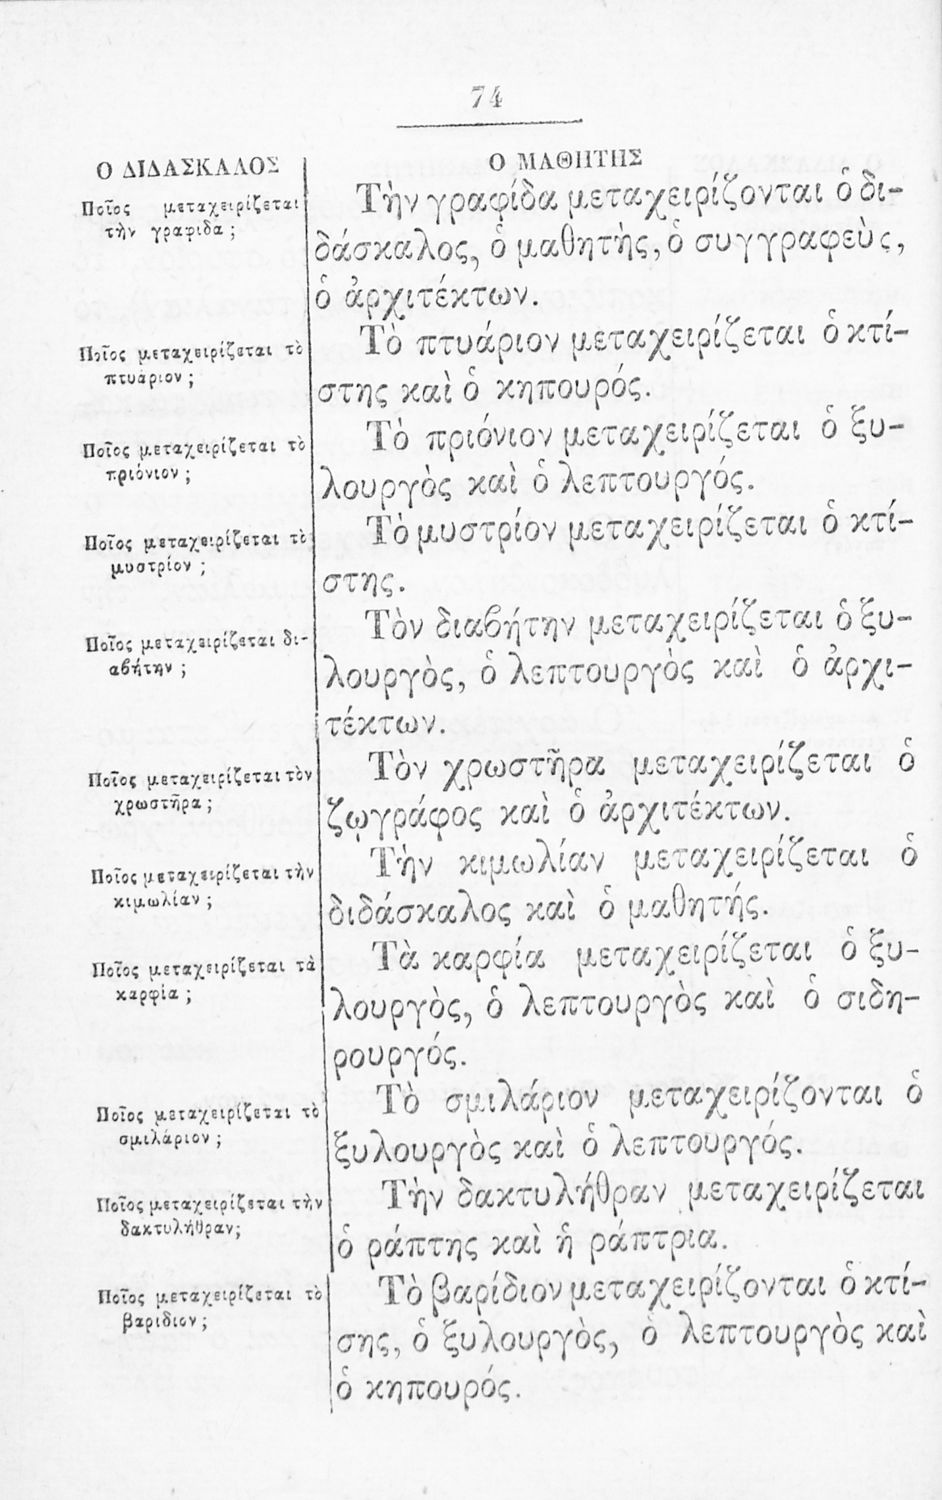 74
Ο ΔΙΔΑΣΚΑΛΟΣ
Ποῖος μεταχειρίζεται
τὴν γραφίδα ;
Ποῖος μεταχειρίζεται τὸ
πτυάριον ;
Ποῖος μεταχειρίζεται τὸ
πριόνιον ;
Ποῖος μεταχειρίζεται τὸ
μυστρίον ;
Ποῖος μεταχειρίζεται δι-
αβήτην ;
Ποῖος μεταχειρίζεται τὸν
χρωστῆρα ;
Ποῖος μεταχειρίζεται τὴν
κιμωλίαν ;
Ποῖος μεταχειρίζεται τὰ
καρφία ;
Ποῖος μεταχειρίζεται τὸ
σμιλάριον ;
Ποῖος μεταχειρίζεται τὴν
δακτυλήθραν;
Ποῖος μεταχειρίζεται τὸ
βαρίδιον ;
Ο ΜΑΘΗΤΗΣ
Τὴν γραφίδα μεταχειρίζονται ὁ δι-
δάσκαλος, ὁ μαθητὴς, ὁ συγγραφεὺς,
ὁ ἀρχιτέκτων.
Τὸ πτυάριον μεταχειρίζεται ὁ κτί-
στης καὶ ὁ κηπουρός.
Τὸ πριόνιον μεταχειρίζεται ὁ ξυ-
λουργὸς καὶ ὁ λεπτουργός.
Τὸ μυστρίον μεταχειρίζεται ὁ κτί-
στης.
Τὸν διαβήτην μεταχειρίζεται ὁ ξυ-
λουργὸς, ὁ λεπτουργὸς καὶ ὁ ἀρχι-
τέκτων.
Τὸν χρωστῆρα μεταχειρίζεται ὁ
ζῳγράφος καὶ ὁ ἀρχιτέκτων.
Τὴν κιμωλίαν μεταχειρίζεται ὁ
διδάσκαλος καὶ ὁ μαθητής.
Τὰ καρφία μεταχειρίζεται ὁ ξυ-
λουργὸς, ὁ λεπτουργὸς καὶ ὁ σιδη-
ρουργός.
Τὸ σμιλάριον μεταχειρίζονται ὁ
ξυλουργὸς καὶ ὁ λεπτουργός.
Τὴν δακτυλήθραν μεταχειρίζεται
ὁ ράπτης καὶ ἡ ράπτρια.
Τὸ βαρίδιον μεταχειρίζονται ὁ κτί-
σης, ὁ ξυλουργὸς, ὁ λεπτουργὸς καὶ
ὁ κηπουρός.